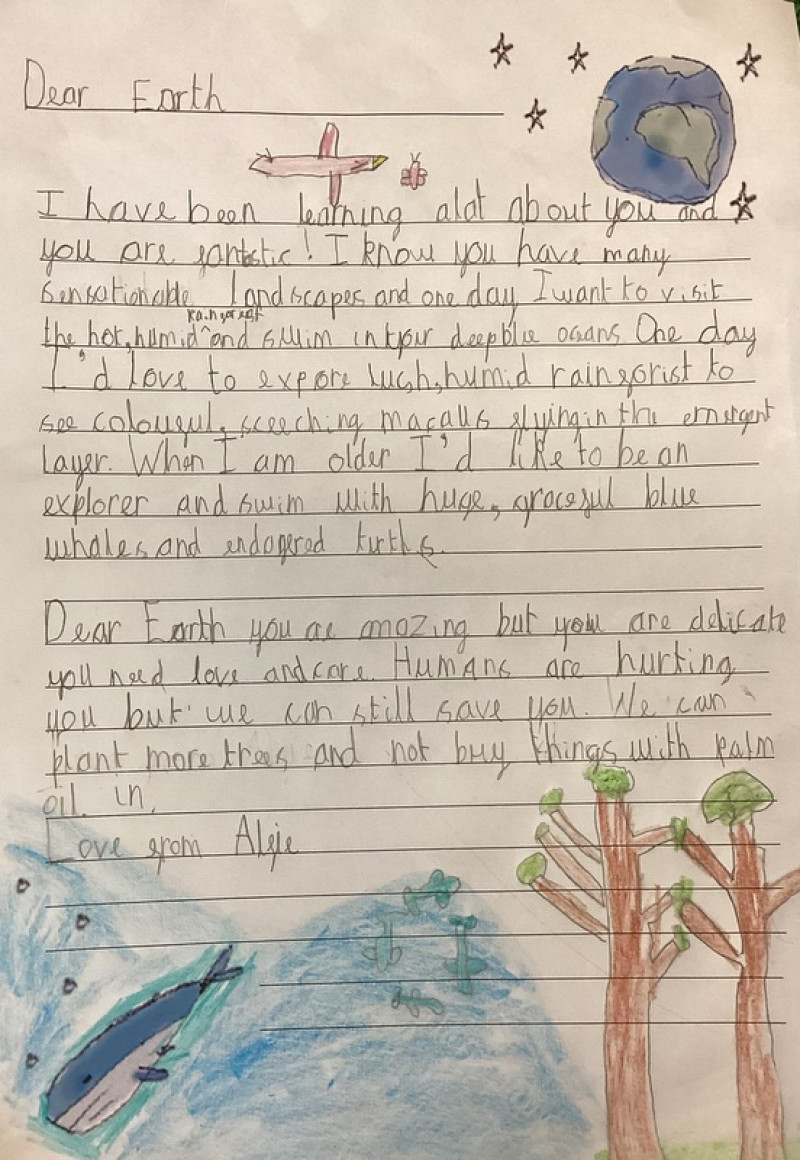 Dear Earth
I have been learning alot about you and
you are fantastic! I know you have many
sensationable landscapes and one day I want to visit
the hot, humid ^rainforest and swim in your deep blue ocans One day
I'd love to expore lush, humid rainforist to
see colourful, sceeching macaws flying in the emergent
layer. When I am older I'd like to be an
explorer and swim with huge, graceful blue
whales and endagered turtles.
Dear Earth you are amazing but you are delicate
you need love and care. Humans are hurting
you but we can still save you. We can
plant more trees and not buy things with palm
oil in.
Love from Alfie